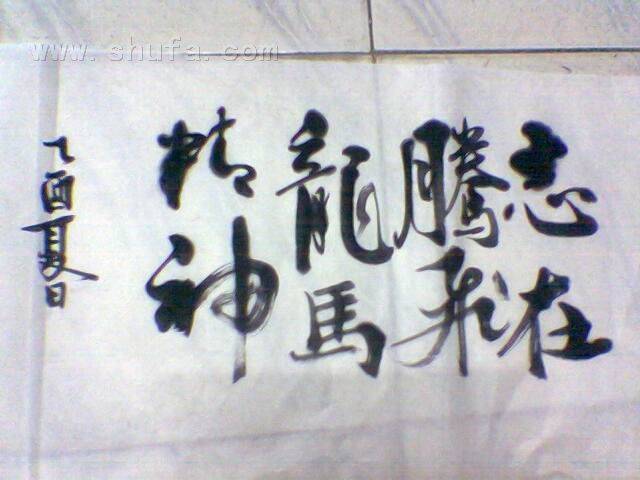 志在
騰飛
龍馬
精神
乙酉夏日
www.shufa.com